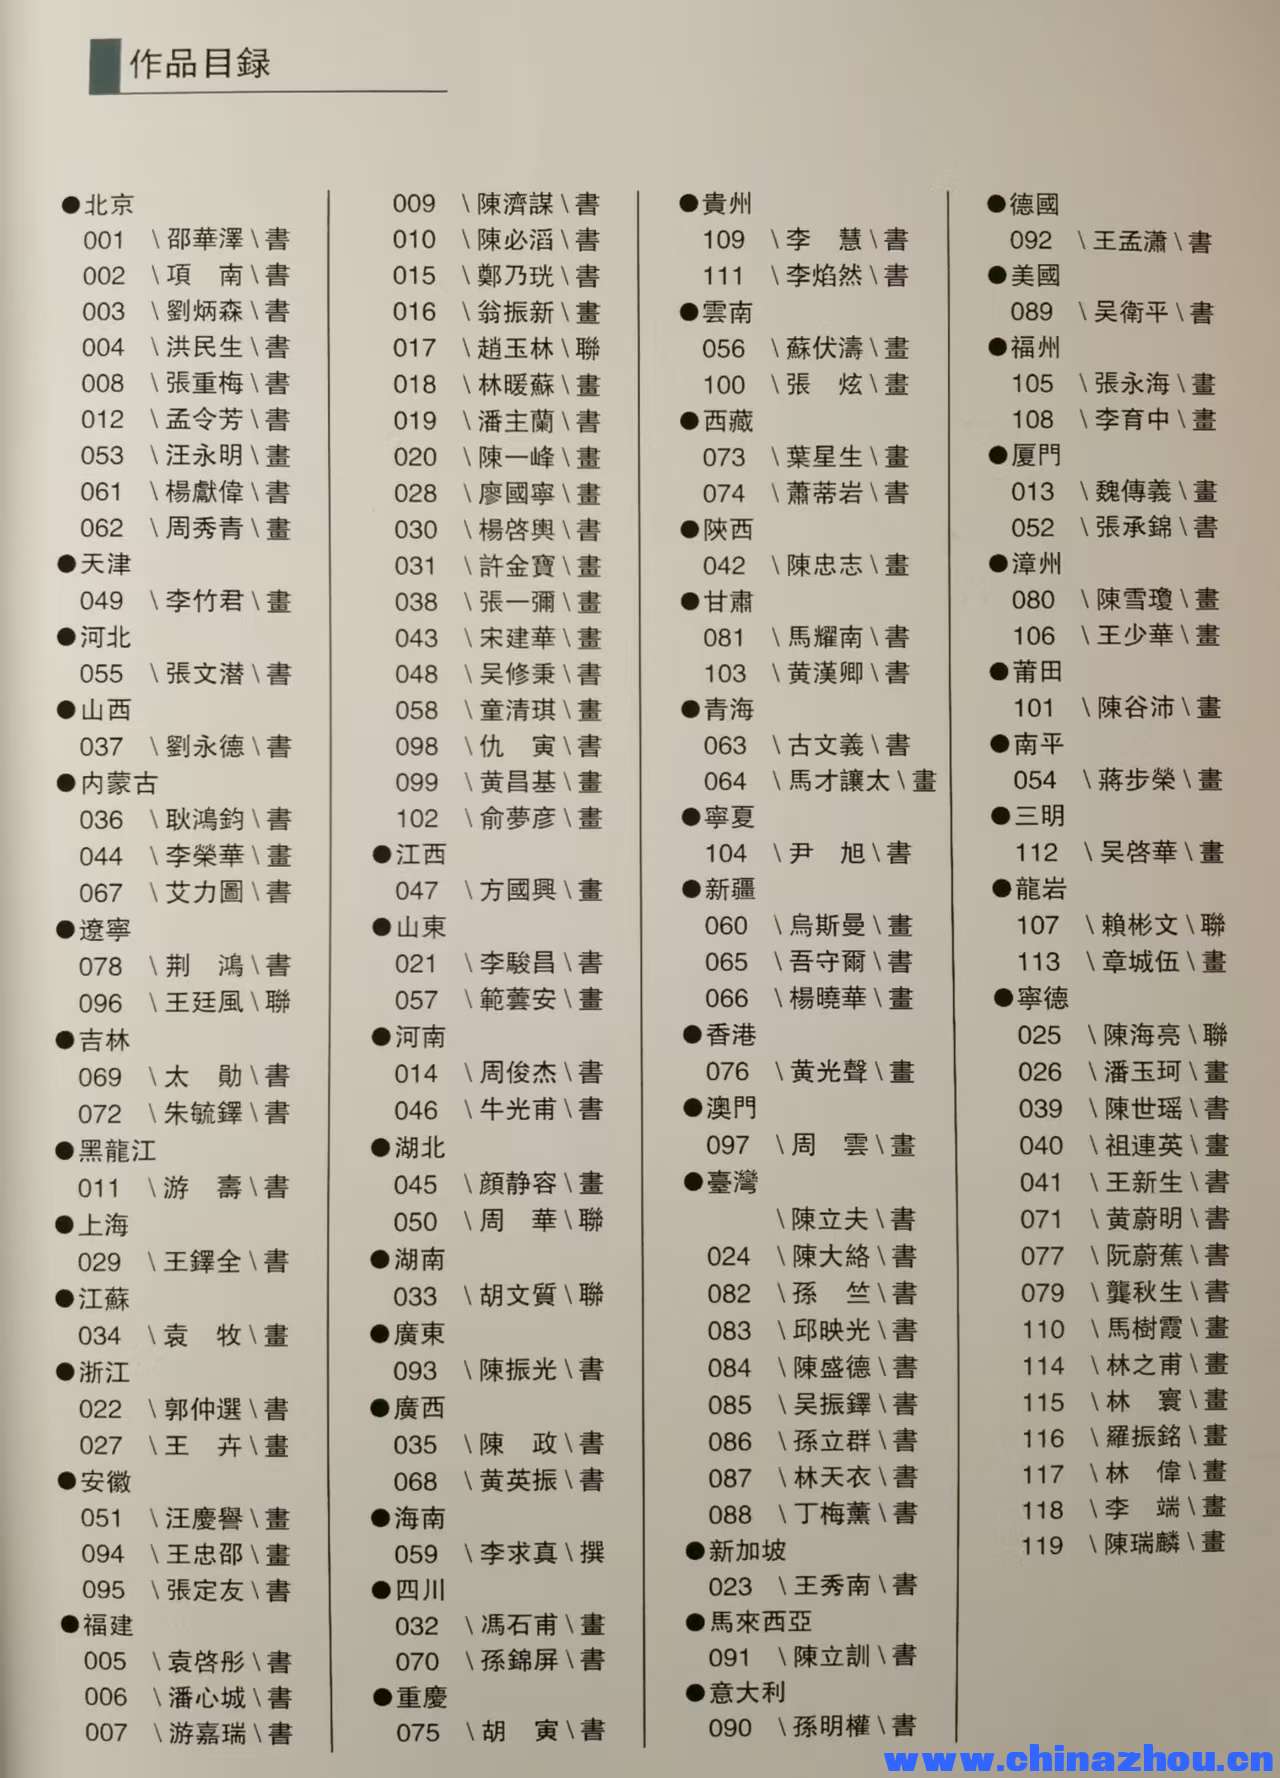 作品目録
●北京
001 \邵華澤\書
002 \項　南\書
003 \劉炳森\書
004 \洪民生\書
008 \張重梅\書
012 \孟令芳\書
053 \汪永明\畫
061 \楊獻偉\書
062 \周秀青\畫
●天津
049 \李竹君\畫
●河北
055 \張文潜\書
●山西
037 \劉永德\書
●内蒙古
036 \耿鴻鈞\書
044 \李榮華\畫
067 \艾力圖\書
●遼寧
078 \荆　鴻\書
096 \王廷風\聯
●吉林
069 \太　勛\書
072 \朱毓鐸\書
●黑龍江
011 \游　壽\書
●上海
029 \王鐸全\書
●江蘇
034 \袁　牧\畫
●浙江
022 \郭仲選\書
027 \王　卉\畫
●安徽
051 \汪慶譽\畫
094 \王忠邵\畫
095 \張定友\書
●福建
005 \袁啓彤\書
006 \潘心城\書
007 \游嘉瑞\書
009 \陳濟謀\書
010 \陳必滔\書
015 \鄭乃珖\書
016 \翁振新\畫
017 \趙玉林\聯
018 \林暖蘇\畫
019 \潘主蘭\書
020 \陳一峰\畫
028 \廖國寧\畫
030 \楊啓輿\書
031 \許金寶\畫
038 \張一彌\畫
043 \宋建華\畫
048 \吴修秉\書
058 \童清琪\畫
098 \仇　寅\書
099 \黄昌基\畫
102 \俞夢彦\畫
●江西
047 \方國興\畫
●山東
021 \李駿昌\書
057 \範蕓安\畫
●河南
014 \周俊杰\書
046 \牛光甫\書
●湖北
045 \顔静容\畫
050 \周　華\聯
●湖南
033 \胡文質\聯
●廣東
093 \陳振光\書
●廣西
035 \陳　政\書
068 \黄英振\書
●海南
059 \李求真\撰
●四川
032 \馮石甫\畫
070 \孫錦屏\書
●重慶
075 \胡　寅\書
●貴州
109 \李　慧\書
111 \李焰然\書
●雲南
056 \蘇伏濤\畫
100 \張　炫\畫
●西藏
073 \葉星生\畫
074 \蕭蒂岩\書
●陝西
042 \陳忠志\畫
●甘肅
081 \馬耀南\書
103 \黄漢卿\書
●青海
063 \古文義\書
064 \馬才讓太\畫
●寧夏
104 \尹　旭\書
●新疆
060 \烏斯曼\畫
065 \吾守爾\書
066 \楊曉華\畫
●香港
076 \黄光聲\畫
●澳門
097 \周　雲\畫
●臺灣
\陳立夫\書
024 \陳大絡\書
082 \孫　竺\書
083 \邱映光\書
084 \陳盛德\書
085 \吴振鐸\書
086 \孫立群\書
087 \林天衣\書
088 \丁梅薰\書
●新加坡
023 \王秀南\書
●馬來西亞
091 \陳立訓\書
●意大利
090 \孫明權\書
●德國
092 \王孟瀟\書
●美國
089 \吴衛平\書
●福州
105 \張永海\畫
108 \李育中\畫
●厦門
013 \魏傳義\畫
052 \張承錦\書
●漳州
080 \陳雪瓊\畫
106 \王少華\畫
●莆田
101 \陳谷沛\畫
●南平
054 \蔣步榮\畫
●三明
112 \吴啓華\畫
●龍岩
107 \賴彬文\聯
113 \章城伍\畫
●寧德
025 \陳海亮\聯
026 \潘玉珂\畫
039 \陳世瑶\書
040 \祖連英\畫
041 \王新生\書
071 \黄蔚明\書
077 \阮蔚蕉\書
079 \龔秋生\書
110 \馬樹霞\畫
114 \林之甫\畫
115 \林　寰\畫
116 \羅振銘\畫
117 \林　偉\畫
118 \李　端\畫
119 \陳瑞麟\畫
www.chinazhou.cn